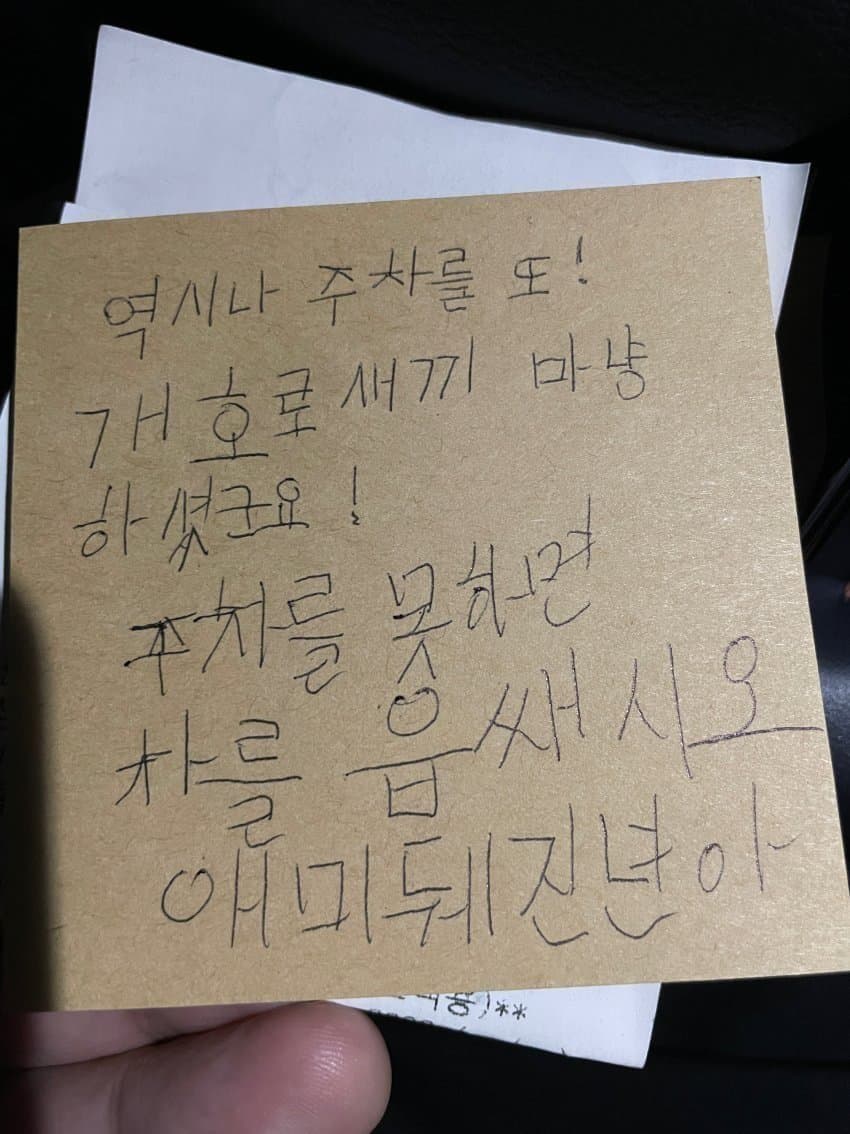 역시나 주차를 또!
개호로새끼 마냥
하셨군요!
주차를 못하면
차를 읍쌔시오
애미뒈진년아